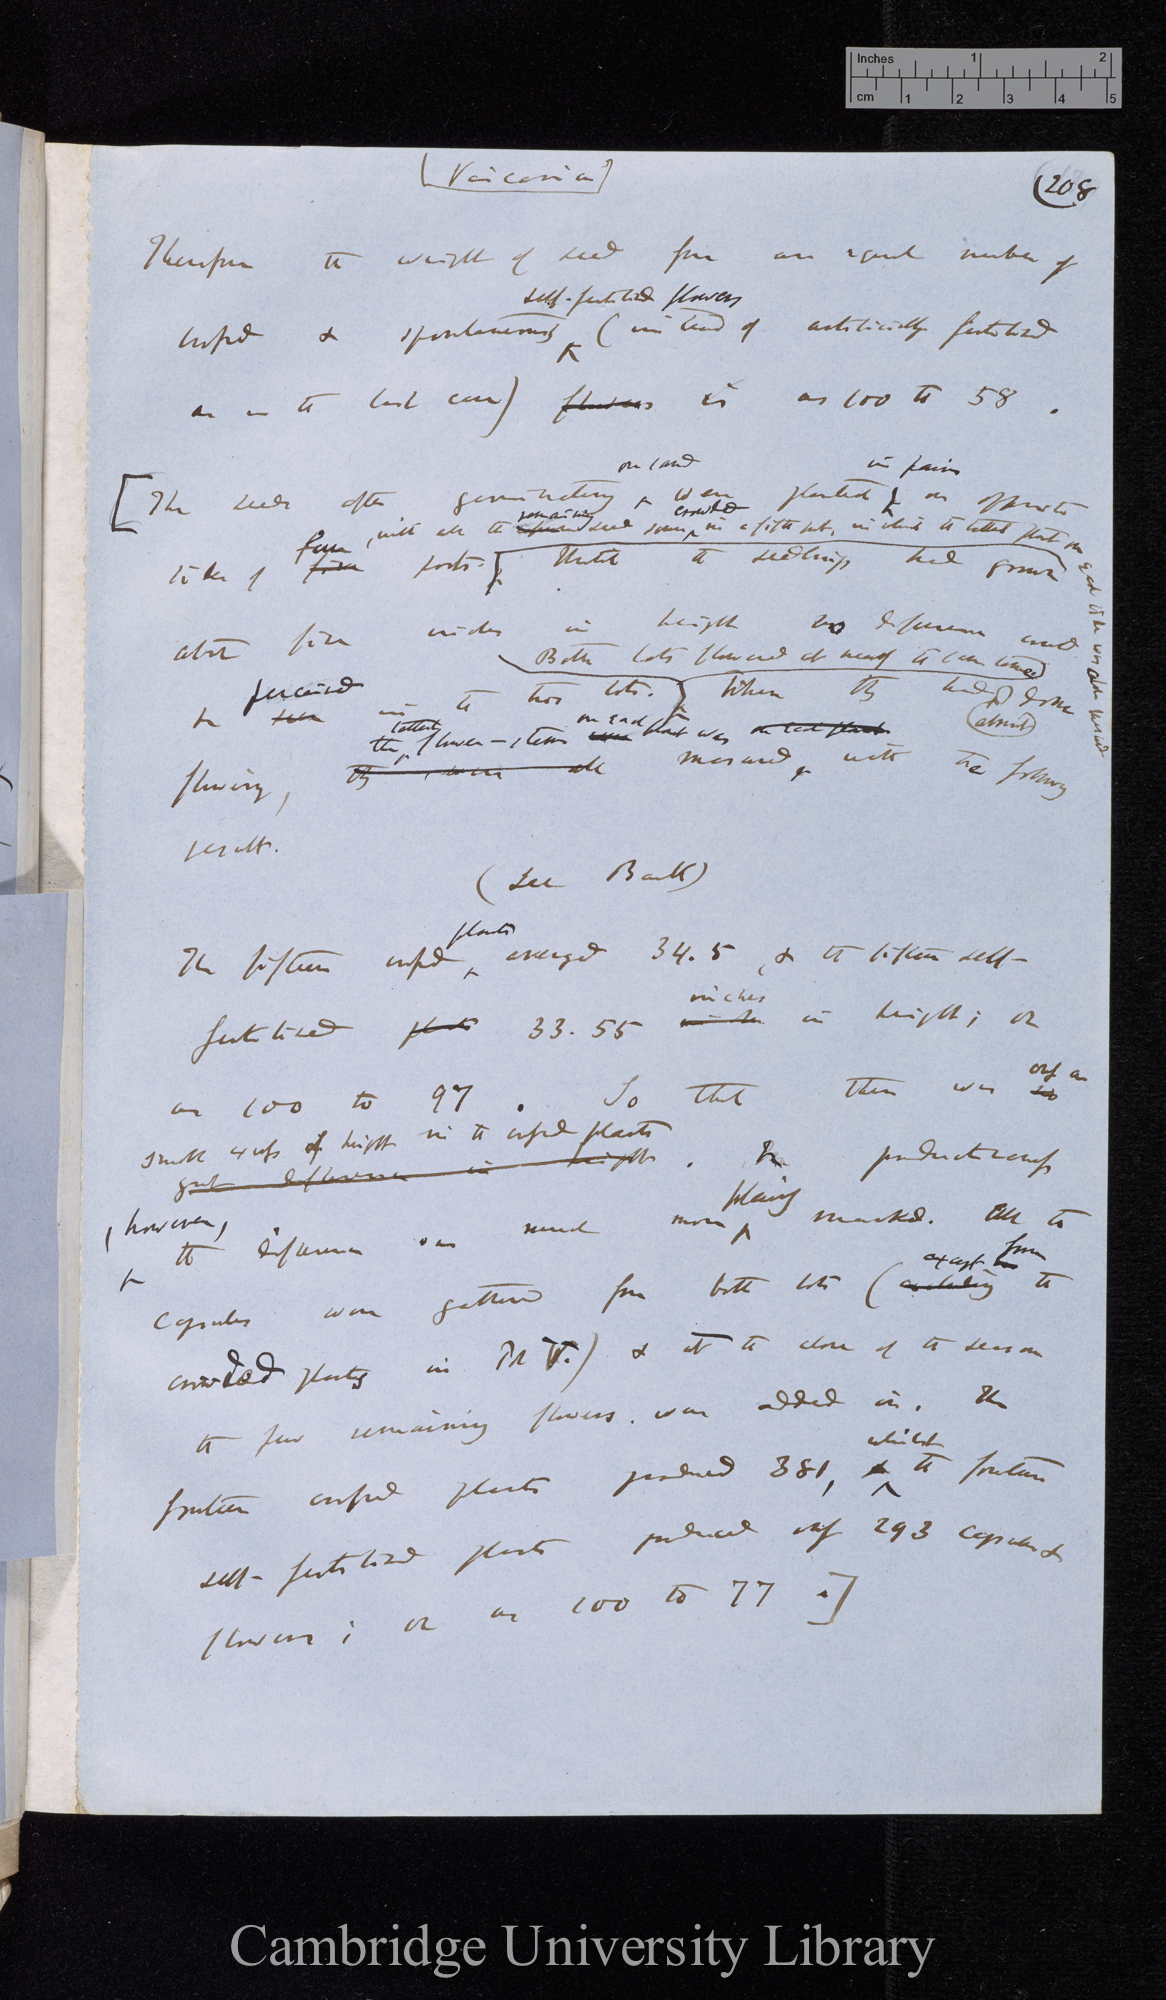 Inches 1 2
cm 1 2 3 4 5
[Viscaria]
(208
Therefore the weight of seed from an equal number of
self-fertilised flowers
crossed & spontaneously (instead of artificially fertilised
as in the last case) flowers is as 100 to 58.
on sand in pairs
[The seeds after germinating were planted on opposite
, with all the remaining seed sown crowded in a fifth pot, in which the tallest plant on each side was also measured
sides of four pots. Until the seedlings had grown
about five inches in height no difference could
Both lots flowered at nearly the same time
be perceived seen in the two lots. When they had done
almost
the tallest flower-stem on each plant was on each plant
flowering, they were all measured, with the following
result.
(See Back)
plants
The fifteen crossed averaged 34.5, & the fifteen self-
inches
fertilised plants 33.55 inches in height; or
only a
as 100 to 97. So that there was no
small excess of height in the crossed plants
great difference in height. In productiveness
, however, plainly
the difference was much more marked. All the
except from
capsules were gathered from both lots (excluding the
crowded plants in Pot V.) & at the close of the season
the few remaining flowers were added in. The
whilst
fourteen crossed plants produced 381, & the fourteen
self-fertilised plants produced only 293 capsules &
flowers; or as 100 to 77.]
Cambridge University Library